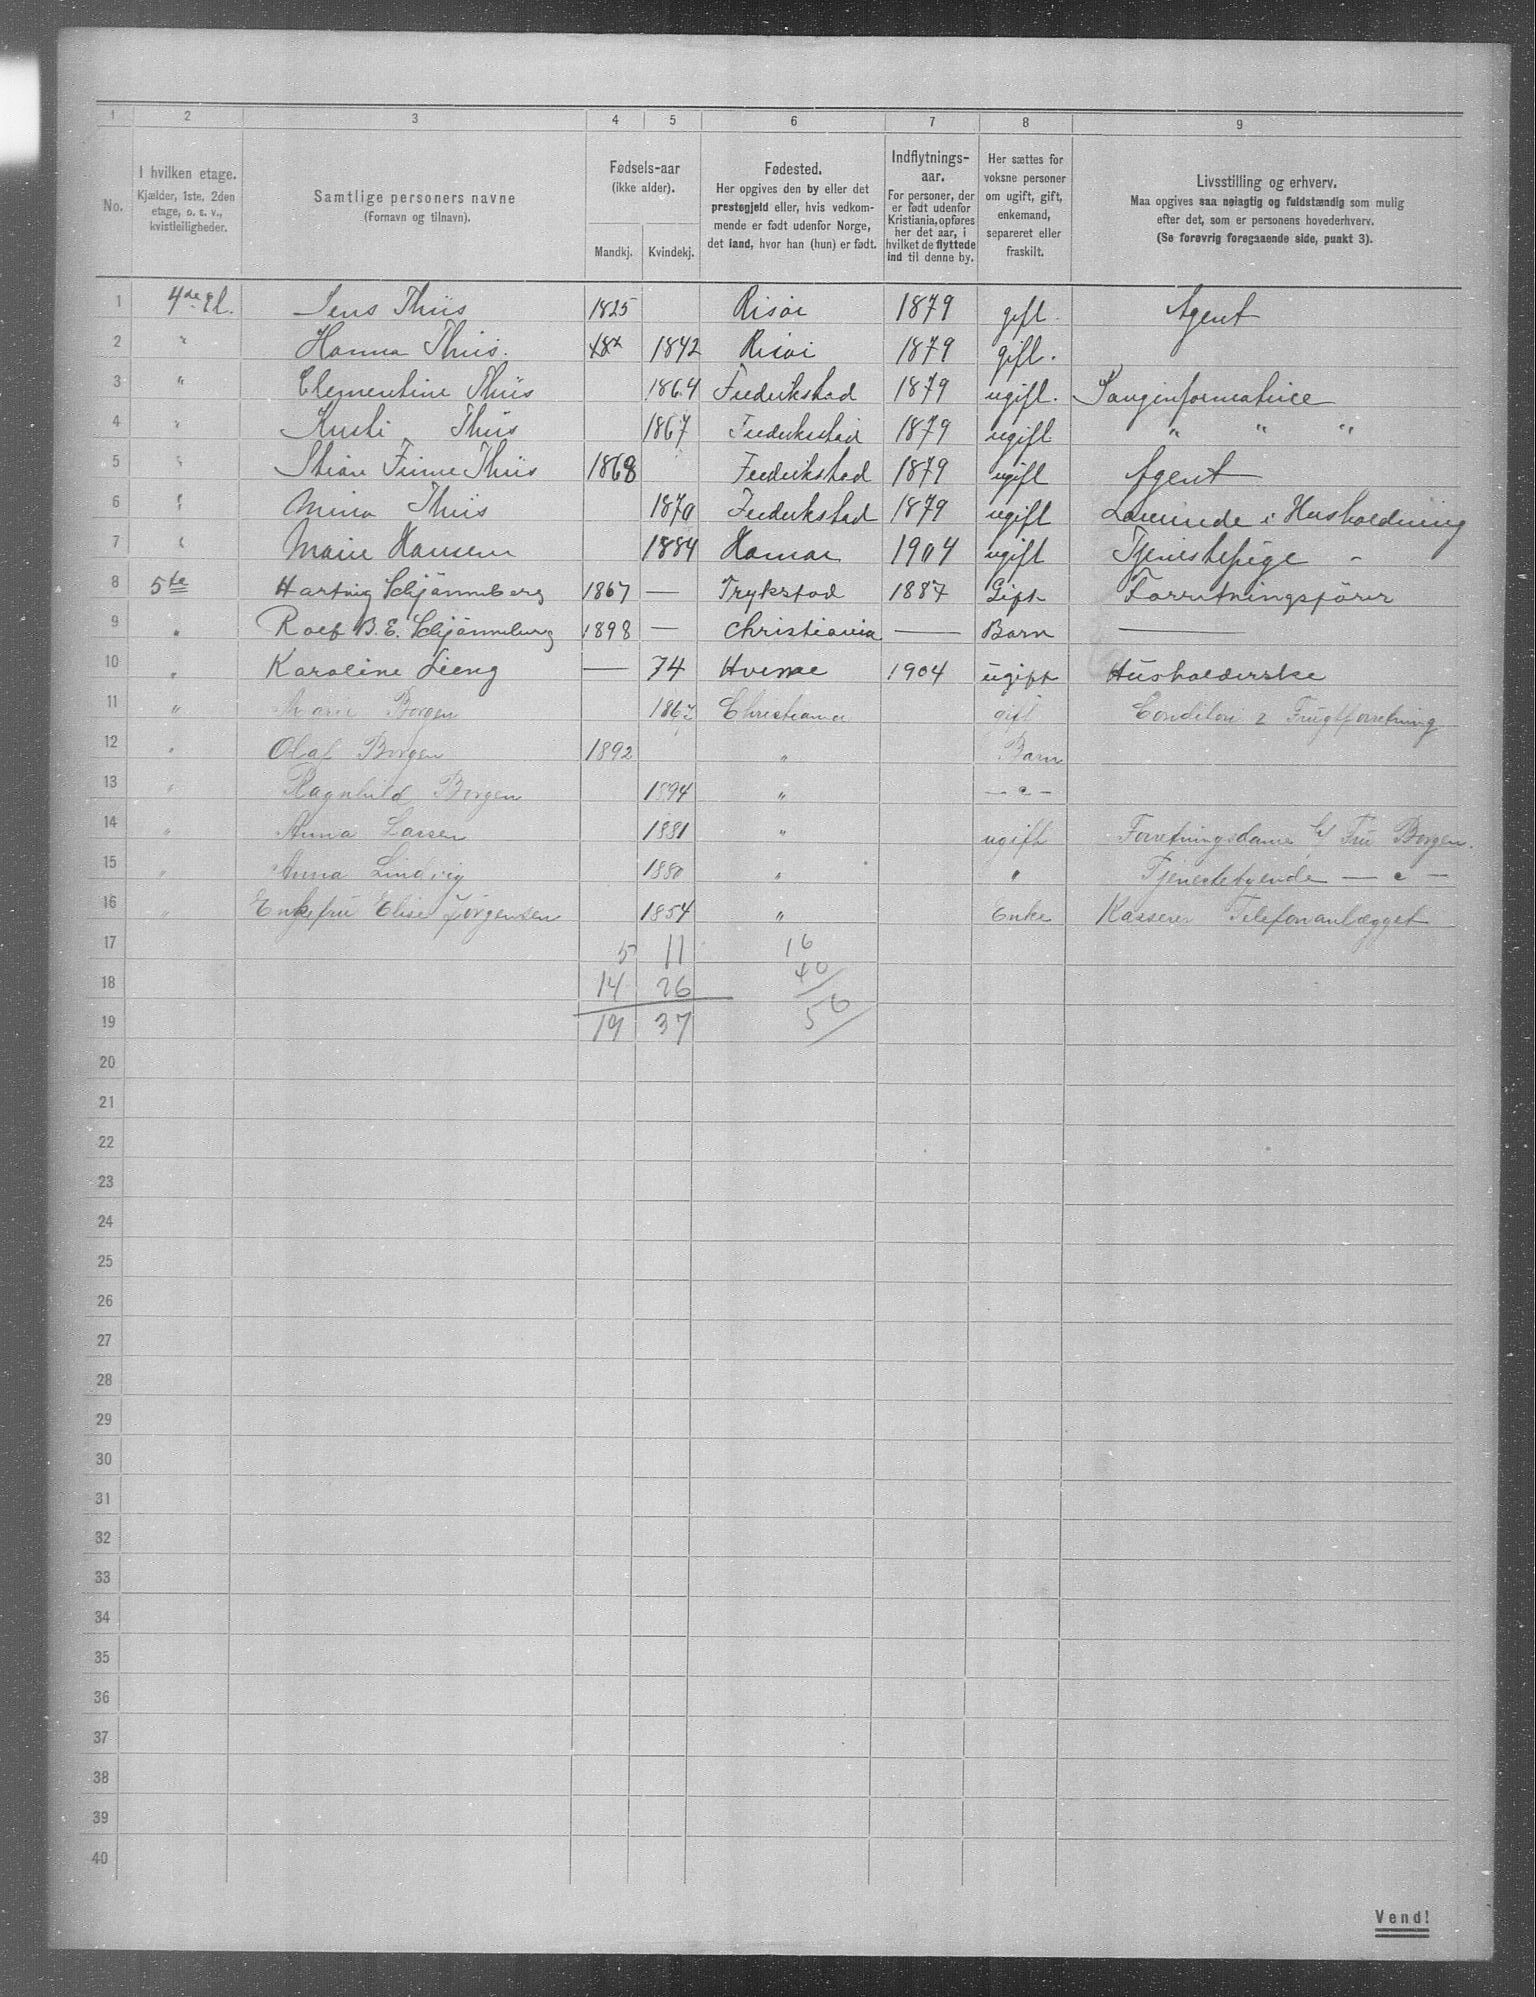 1 2 3 4 5 6 7 8 9
No.
I hvilken etage.
Kjælder, 1ste, 2den
etage, o. s. v.,
kvistleiligheder.
Samtlige personers navne
(Fornavn og tilnavn).
Fødsels-aar
(ikke alder).
Mandkj. Kvindekj.
Fødested.
Her opgives den by eller det
prestegjeld eller, hvis vedkom-
mende er født udenfor Norge,
det land, hvor han (hun) er født.
Indflytnings-
aar.
For personer, der
er født udenfor
Kristiania, opføres
her det aar, i
hvilket de flyttede
ind til denne by.
Her sættes for
voksne personer
om ugift, gift,
enkemand,
separeret eller
fraskilt.
Livsstilling og erhverv.
Maa opgives saa nøiagtig og fuldstændig som mulig
efter det, som er personens hovederhverv.
(Se forøvrig foregaaende side, punkt 3).
1 4de Et. Jens Thiis 1825 Risör 1879 gift. Agent
2 " Hanna Thiis. 1842 Risör 1879 gift.
3 " Clementine Thiis 1864 Frederikstad 1879 ugift.
4 " Thiis 1867 Frederikstad 1879 ugift " " "
5 " Stian Finne Thiis 1868 Frederikstad 1879 ugift Agent
6 " Mina Thiis 1870 Frederikstad 1879 ugift i Husholdning
7 " Marie Hansen 1884 Hamar 1904 ugift Tjenestepige -
8 5te Hartvig Schjønneberg 1867 — Trykstad 1887 Gift Forretningsfører
9 " Rolf B. E. Schjønneberg 1898 — Christiania — Barn —
10 " Karoline Lieng — 74 1904 ugift Husholderske
11 " Marie Borgen 1867 Christiania gift Conditori & Frugtforretning
12 " Olaf Borgen 1892 " Barn
13 " Ragnhild Borgen 1894 " — " —
14 " Anna Larsen 1881 " ugift Forretningsdame h/ Fru Borgen.
15 " Anna Lindvig 1880 " " Tjenestetyende — " —
16 " Enkefru Elise Jörgensen 1854 " Enke Kasserer Telefonanlægget
17 5 11 16
18 14 26 40
19 19 37 56
20
21
22
23
24
25
26
27
28
29
30
31
32
33
34
35
36
37
38
39
40
Vend!